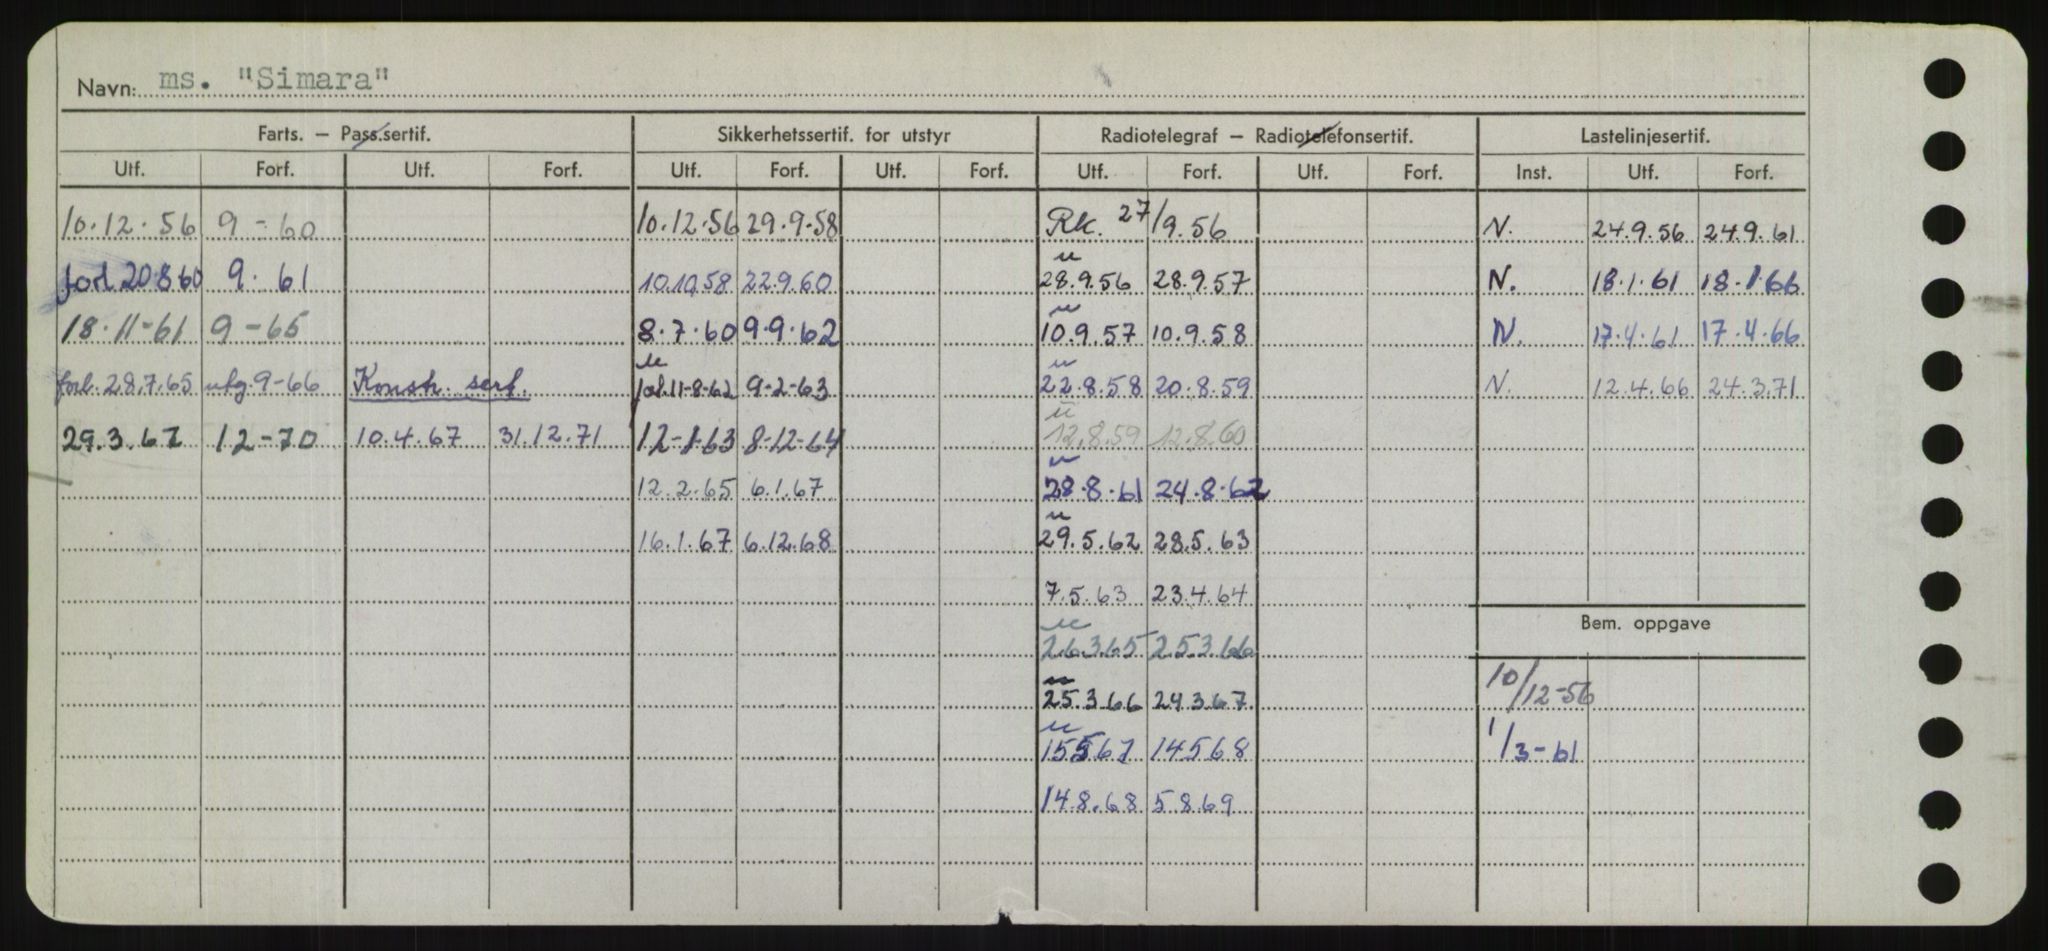 Navn: ms. "Simara"
Farts. — Pass.sertif. Sikkerhetssertif. for utstyr Radiotelegraf — Radiotelefonsertif. Lastelinjesertif.
Utf. Forf. Utf. Forf. Utf. Forf. Utf. Forf. Utf. Forf. Utf. Forf. Inst. Utf. Forf.
10.12.56 9-60 10.12.56 29.9.58 RK. 27/9.56 N. 24.9.56 24.9.61
forl 20.8.60 9.61 10.10.58 22.9.60 28.9.56 28.9.57 N. 18.1.61 18.1.66
18.11-61 9-65 8.7.60 9.9.62 10.9.57 10.9.58 N. 17.4.61 17.4.66
forl. 28.7.65 utg. 9-66 Konstr. sert. fol. 11-8-62 9-2-63 22.8.58 20.8.59 N. 12.4.66 24.3.71
29.3.67 12-70 10.4.67 31.12.71 12-1-63 8-12-64 12.8.59 12.8.60
12.2.65 6.1.67 28.8.61 24.8.62
16.1.67 6.12.68 29.5.62 28.5.63
7.5.63 23.4.64
Bem. oppgave
26.3.65 25.3.66
25.3.66 24.3.67 10/12-56
15.5.67 14.5.68 1/3-61
14.8.68 5.8.69